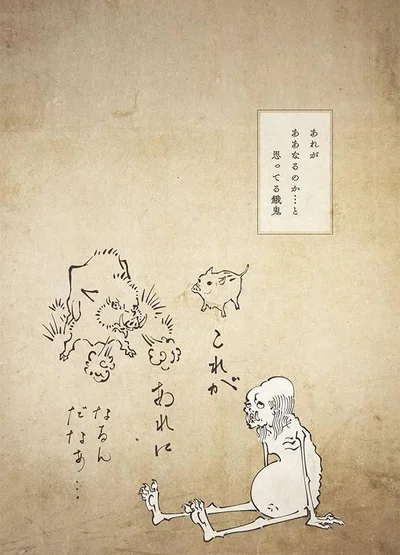 あれが
ああなるのか…と
思ってる餓鬼
これが
あれに
なるん
だなぁ…